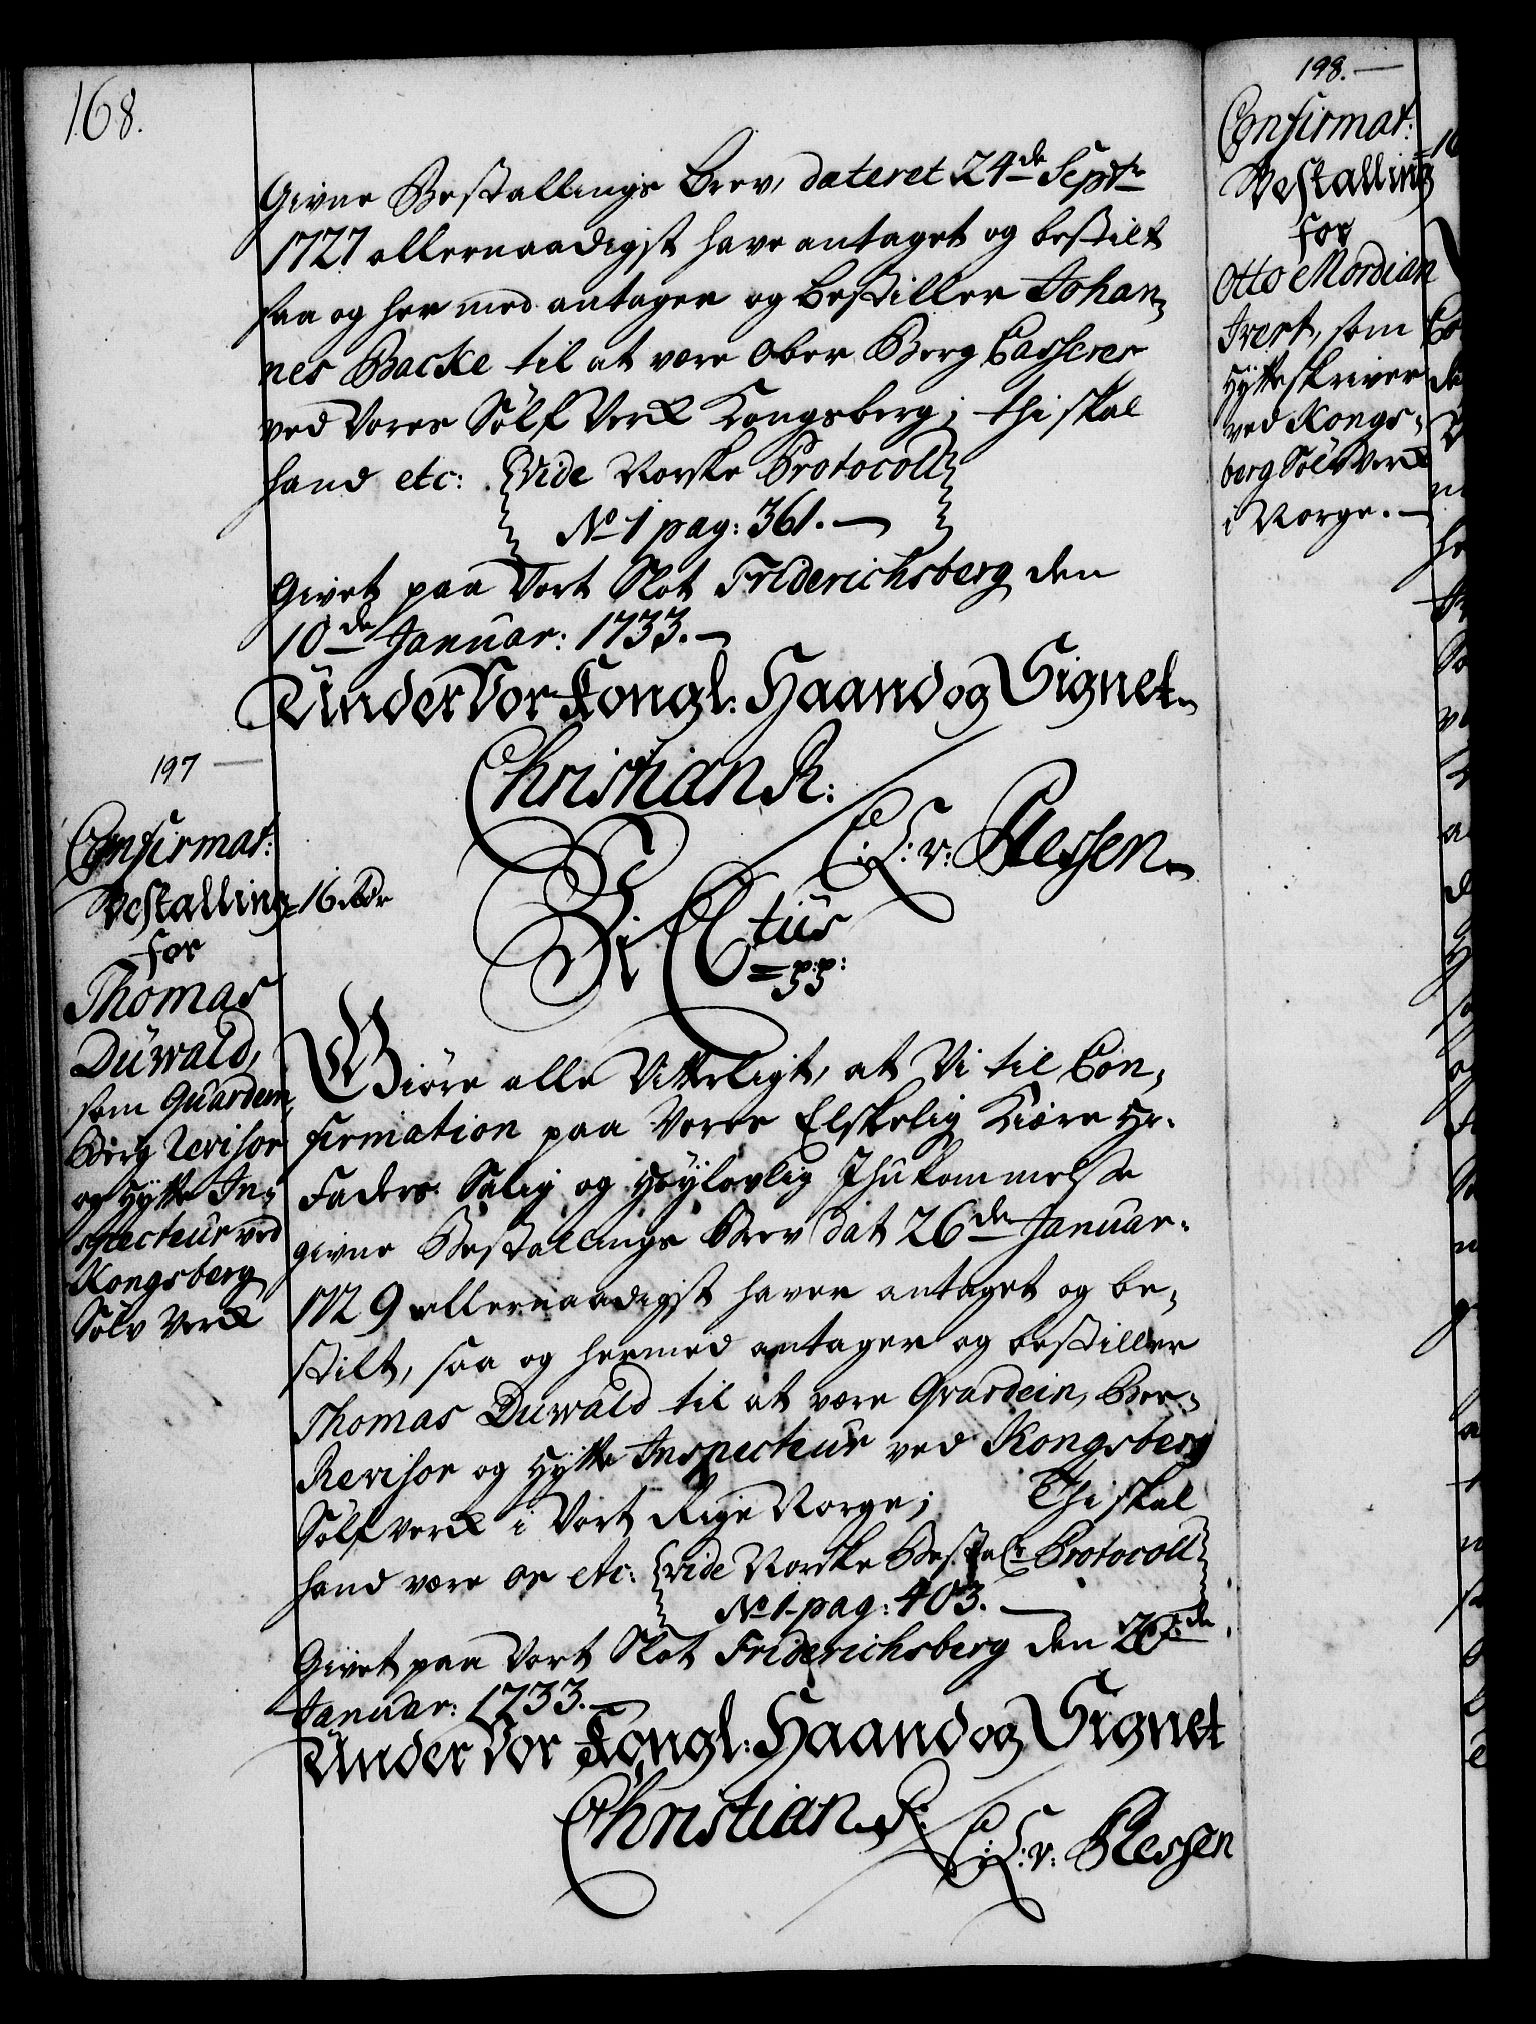 168.
Givne Bestallings Brev, dateret 24de Septr
1727 allernaadigst have antaget og bestilt
saa og her med antager og bestiller Johan¬
nes Backe til at være Ober Berg Casserer
ved Vores Sölf Verk Kongsberg; thi skal
hand etc: Vide Norske Protocoll
No 1 pag: 361.
Givet paa Vort Slot Friderichsberg den
10de Januar: 1733.
Under Vor Kongl: Haand og Signet
Christian R:
C: A: v: Plessen
197
Confirmat:
Bestalling
for
Thomas
Duwald,
som Guardein,
Berg Revisor
og Hytte In¬
specteur ved
Kongsberg
Sölv Verk
16 Rdr
Vi C 6tus
pp:
Giöre alle Vitterligt, at Vi til Con¬
firmation paa Vores Elskelig Kiære Hr.
Faders Salig og Höylovlig Ihukommelse
givne Bestallings Brev dat 26de Januar.
1729 allernaadigst haver antaget og be¬
stilt, saa og hermed antager og bestiller
Thomas Duwald til at være Gvardein, Ber-
Revisor og Hytte Inspecteur ved Kongsberg
Sölfverk i Vort Rige Norge; Thi skal
hand være os etc: vide Norske Bestal: Protocoll
No 1 pag: 403.
Givet paa Vort Slot Friderichsberg den
Januar: 1733.
Under Vor Kongl: Haand og Signet
Christian R:
C: A: v: Plessen
198.
Confirmat:
Bestalling
for
Otto Mordian
som
Hytteskriver
ved Kongs¬
berg Sölv Verk
i Norge.